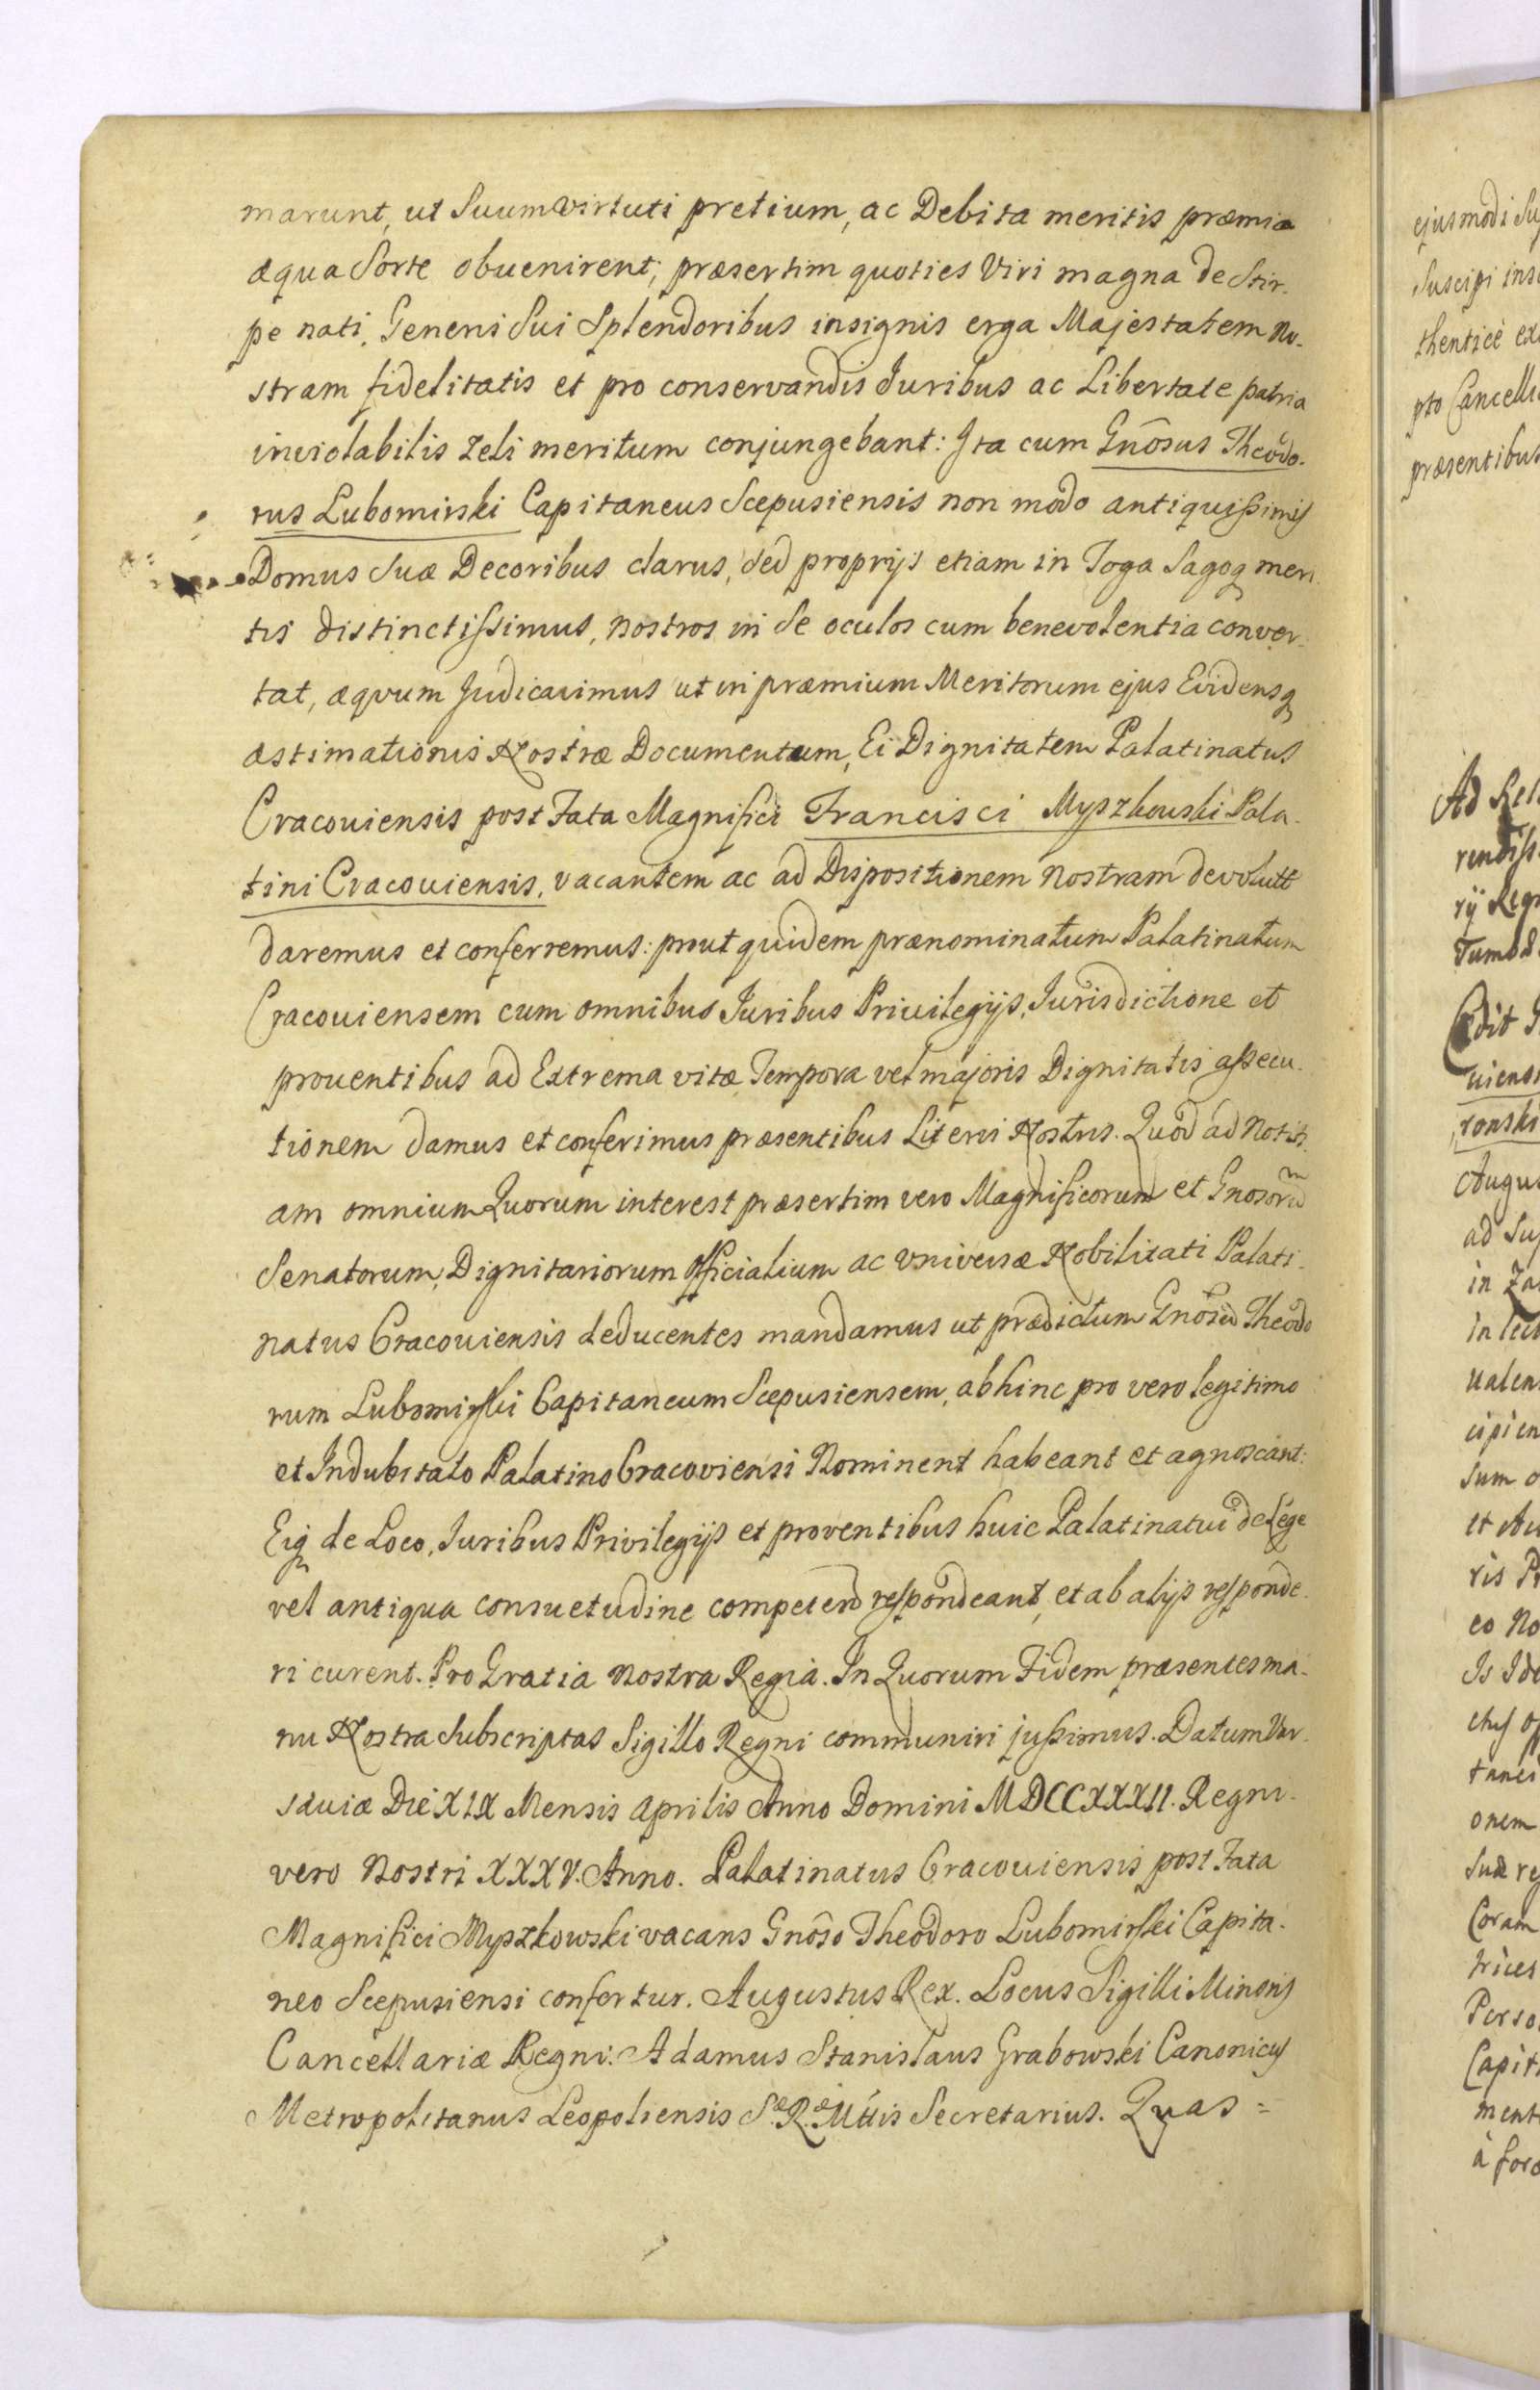 marunt, ut Suum virtuti pretium, ac Debita meritis præmia
æqua Sorte obuenirent; præsertim quoties Viri magna de Stir-
pe nati, Generis Sui Splendoribus insignis erga Majestatem No-
stram fidelitatis et pro conservandis Juribus ac Libertate patria
inviolabilis zeli meritum conjungebant: Ita cum Gnôsus Theodo-
rus Lubomirski Capitaneus Scepusiensis non modo antiquissimis
Domus Suæ Decoribus clarus, sed proprijs etiam in Toga Sagoq meri
tis distinctissimus, nostros in Se oculos cum benevolentia conver-
tat, æqvum Judicavimus ut in præmium Meritorum ejus Evidensq
æstimationis Nostræ Documentum, Ei Dignitatem Palatinatus
Cracouiensis post Fata Magnifici Francisci Myszkowski Pala-
tini Cracouiensis, vacantem ac ad Dispositionem nostram devolutt
daremus et conferremus: prout quidem prænominatum Palatinatum
Cracouiensem cum omnibus Juribus Privilegijs, Jurisdictione et
prouentibus ad Extrema vitæ Tempora vel majoris Dignitatis assecu-
tionem damus et conferimus præsentibus Literis Nostris. Quod ad Notiti-
am omnium Quorum interest præsertim vero Magnificorum et Gnosorũ
Senatorum, Dignitariorum Officialium ac Vniversæ Nobilitati Palati-
natus Cracouiensis deducentes mandamus ut prædictum Gnôsũ Theodo
rum Lubomirski Capitaneum Scepusiensem, abhinc pro vero legitimo
et Indubitato Palatino Cracoviensi Nominent habeant et agnoscant:
Eiq de Loco, Juribus Privilegijs et proventibus huic Palatinatui de Lege
vel antiqua consuetudine competen respondeant, et ab alijs responde-
ri curent. Pro Gratia nostra Regià. In Quorum Fidem præsentes ma-
nu Nostra Subscriptas Sigillo Regni communiri jussimus. Datum Var-
saviæ Die XIX Mensis Aprilis Anno Domini MDCCXXXII. Regni-
vero Nostri XXXV. Anno. Palatinatus Cracouiensis post Fata
Magnifici Myszkowski vacans Gnôso Theodoro Lubomirski Capita-
neo Scepusiensi confertur. Augustus Rex. Locus Sigilli Minoris
Cancellariæ Regni. Adamus Stanislaus Grabowski Canonicus
Metropolitanus Leopoliensis S.æ R.æ Mttis Secretarius. Quas =
ejusmodi
Suscipi
thentice
pto
præsentibus
Ad
rij
ad
in
eo No
Is
onem
Coram
Perso
Capit
ment
à foro